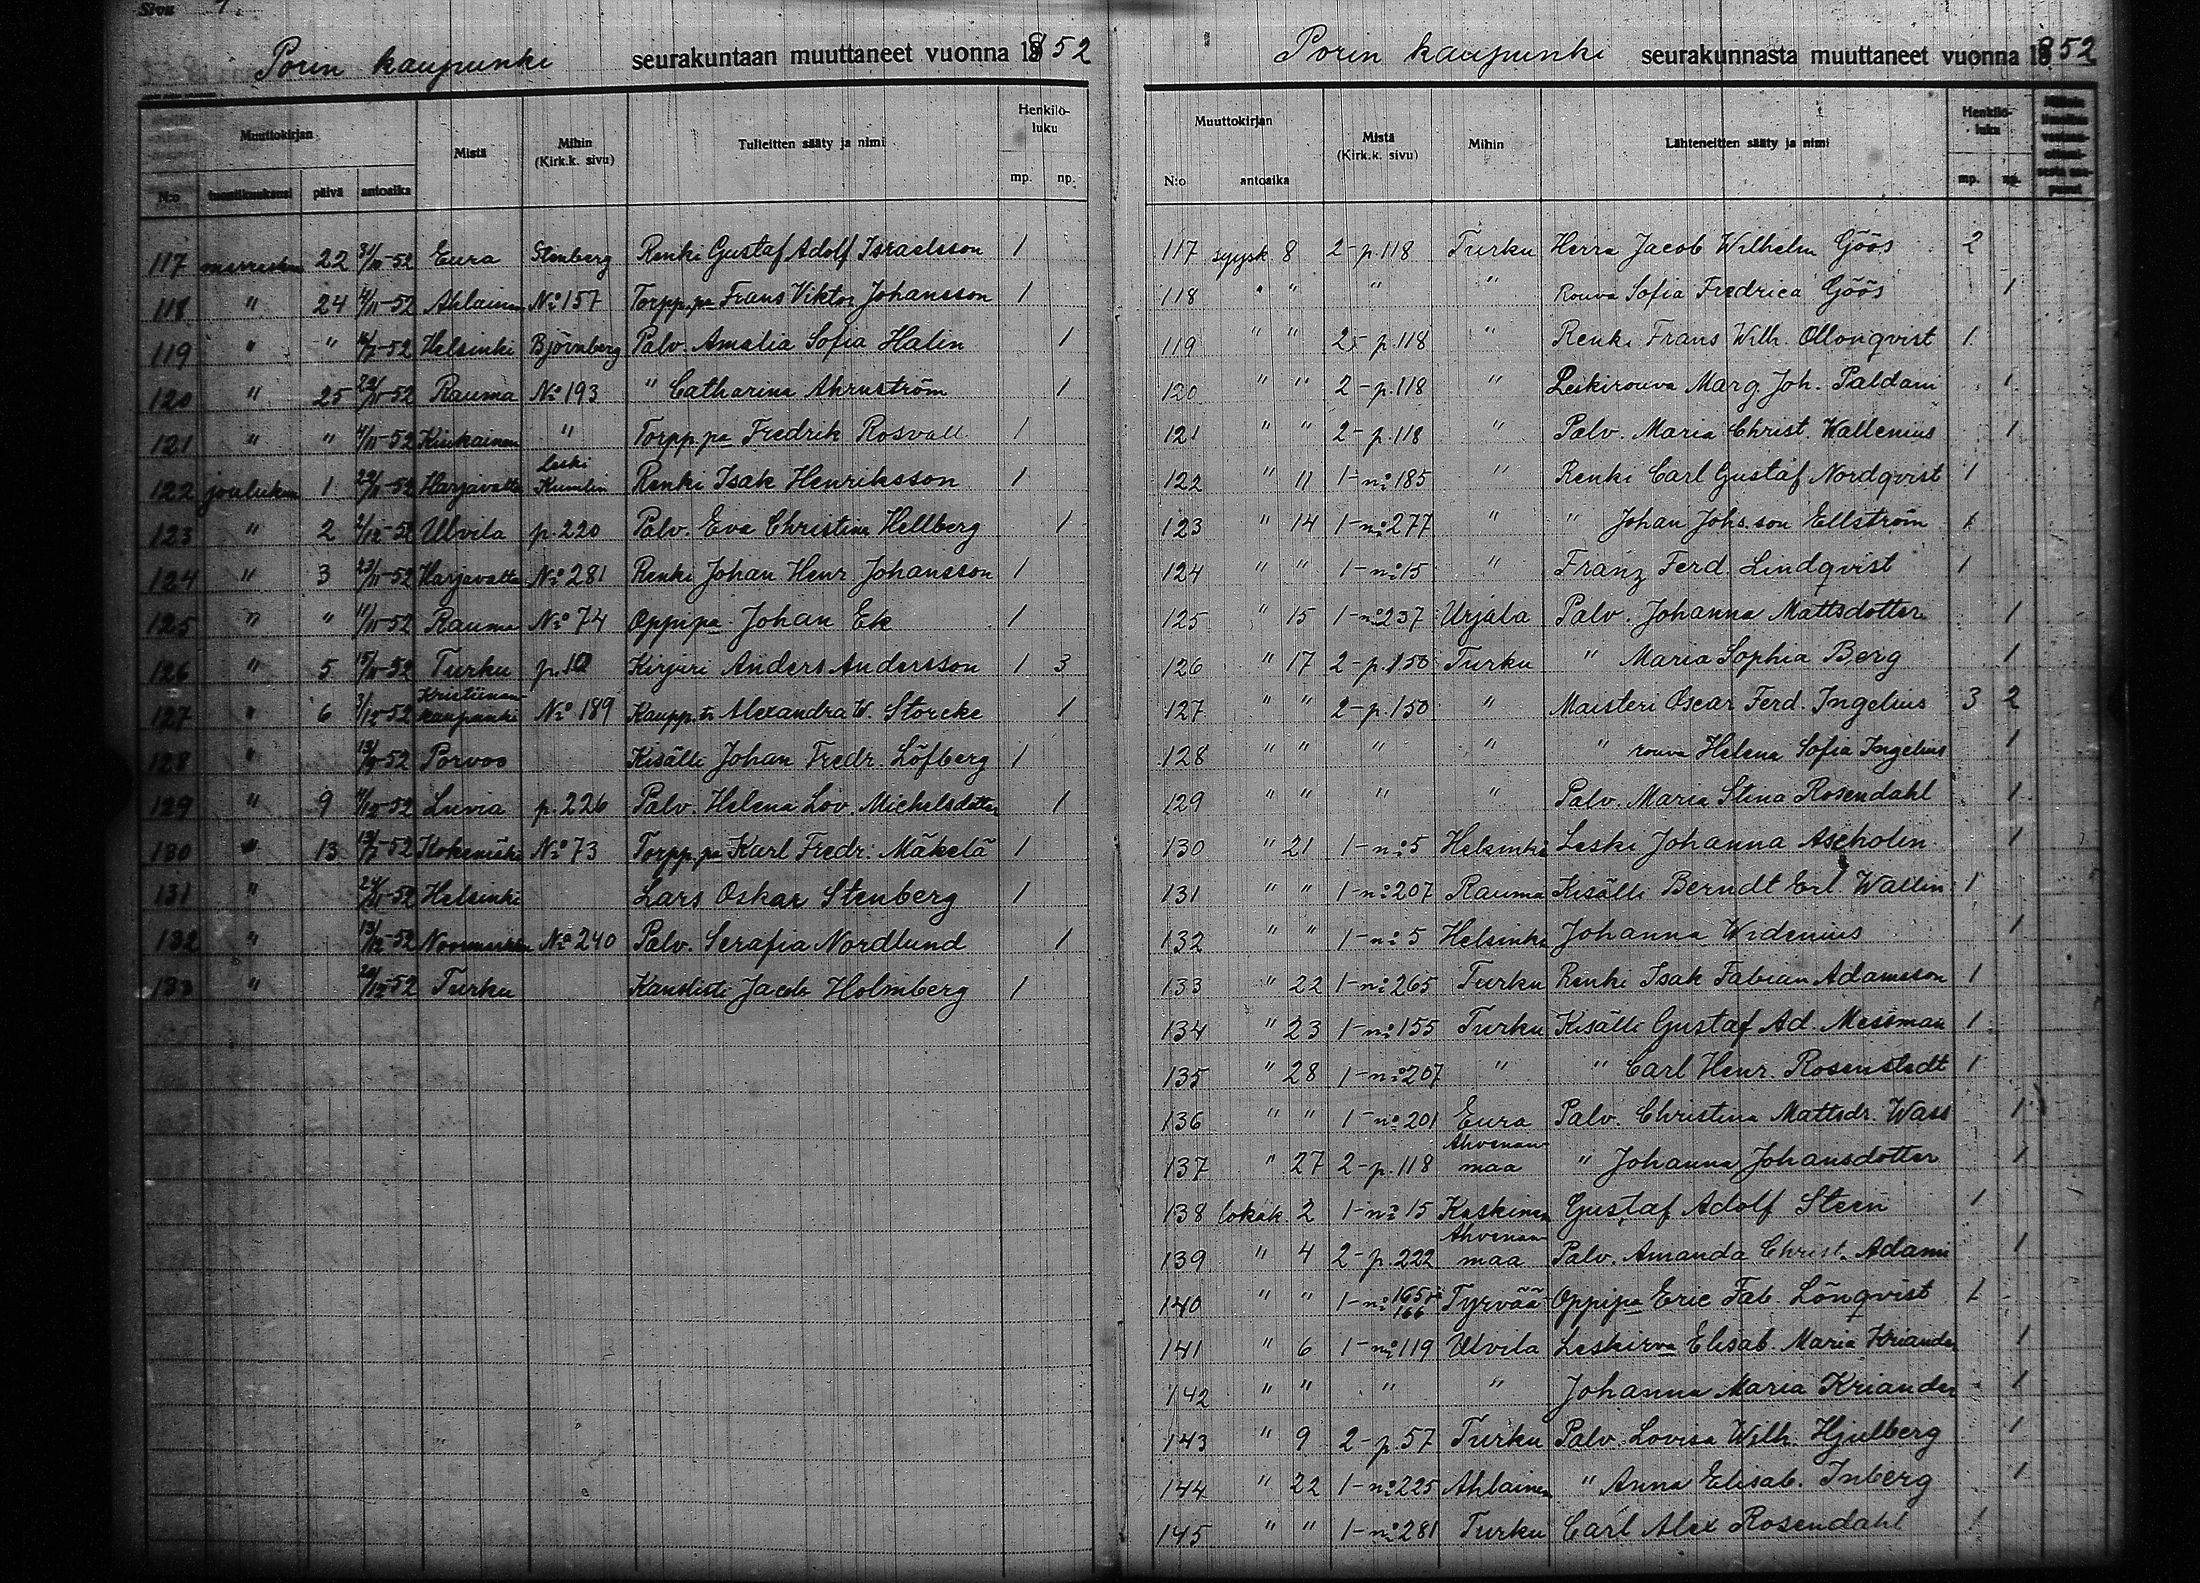 Sivu
Porin kaupunki seurakuntaan muuttaneet vuonna 1852
Muuttokirjan Mistä Mihin (Kirk.k. sivu) Tulleitten sääty ja nimi Henkilöluku
N:o tuontikuukausi päivä antoaika mp. np.
117 marrask. 22 52 Eura Stenberg Renki Gustaf Adolf Israelsson 1
118 " 24 4/11-52 Ahlainen No 157 Torpp.pa Frans Viktor Johansson 1
119 " " -52 Helsinki Björnberg Palv. Amalia Sofia Halin 1
120 " 25 -52 Rauma No 193 " Catharina Ahrnström 1
121 " " -52 Kiukainen " Torpp.pa Fredrik Rosvall 1
122 jouluk. 1 -52 Harjavalta Leski Kumlin Renki Isak Henriksson 1
123 " 2 2/12-52 Ulvila p. 220 Palv. Eva Christina Hellberg 1
124 " 3 23/11-52 Harjavalta No 281 Renki Johan Henr Johansson 1
125 " " 11/11-52 Rauma No 74 Oppipa Johan Ek 1
126 " 5 -52 Turku p. 10 Kirjuri Anders Andersson 1 3
127 " 6 3/12-52 Kristiinankaupunki No 189 Alexandra W. Storcke 1
128 " -52 Porvoo Kisälli Johan Fredr. Löfberg 1
129 " 9 -52 Luvia p. 226 Palv. Helena Lov. Michelsdotter 1
130 " 13 -52 Kokemäki No 73 Torpp.pa Karl Fredr. Mäkelä 1
131 " -52 Helsinki Lars Oskar Stenberg 1
132 " 13/12-52 Noormarkku No 240 Palv. Serafia Nordlund 1
133 " -52 Turku Kanslisti Jacob Holmberg 1
Porin kaupunki seurakunnasta muuttaneet vuonna 1852
Muuttokirjan Mistä (Kirk.k. sivu) Mihin Lähteneitten sääty ja nimi Henkilöluku
N:o antoaika mp. np.
117 syysk. 8 2-p.118 Turku Herra Jacob Wilhelm Göös 2
118 " " " " Rouva Sofia Fredrica Göös 1
119 " " 2-p.118 " Renki Frans Wilh. Ollonqvist 1
120 " " 2-p.118 " Leskirouva Marg. Joh. Paldani 1
121 " " 2-p.118 " Palv. Maria Christ. Wallenius 1
122 " 11 1-no 185 " Renki Carl Gustaf Nordqvist 1
123 " 14 1-no 277 " " Johan Johs.son Ellström 1
124 " " 1-no 15 " Franz Ferd. Lindqvist 1
125 " 15 1-no 237 Urjala Palv. Johanna Mattsdotter 1
126 " 17 2-p.150 Turku " Maria Sophia Berg 1
127 " " 2-p.150 " Maisteri Oscar Ferd. Ingelius 3 2
128 " " " " " rouva Helena Sofia Ingelius 1
129 " " " " Palv. Maria Stina Rosendahl 1
130 " 21 1-no 5 Helsinki Leski Johanna Ascholin 1
131 " " 1-no 207 Rauma Kisälli Berndt Erl. Wallin 1
132 " " 1-no 5 Helsinki Johanna Widenius 1
133 " 22 1-no 265 Turku Renki Isak Fabian Adamsson 1
134 " 23 1-no 155 Turku Kisälli Gustaf Ad. Messman 1
135 " 28 1-no 207 " " Carl Henr. Rosenstedt 1
136 " " 1-no 201 Eura Palv. Christina Mattsdr. Wass 1
137 " 27 2-p.118 Ahvenanmaa " Johanna Johansdotter 1
138 lokak. 2 1-no 15 Kaskinen Gustaf Adolf Steen 1
139 " 4 2-p.222 Ahvenanmaa Palv. Amanda Christ. Adami 1
140 " " 1-no 165 166 Tyrvää Oppipa Eric Fab. Lönqvist 1
141 " 6 1-no 119 Ulvila Leskirva Elisab. Maria Kriander 1
142 " " " " Johanna Maria Kriander 1
143 " 9 2-p.57 Turku Palv. Lovisa Wilh. Hjulberg 1
144 " 22 1-no 225 Ahlainen " Anna Elisab. Inberg 1
145 " " 1-no 281 Turku Carl Alex Rosendahl 1